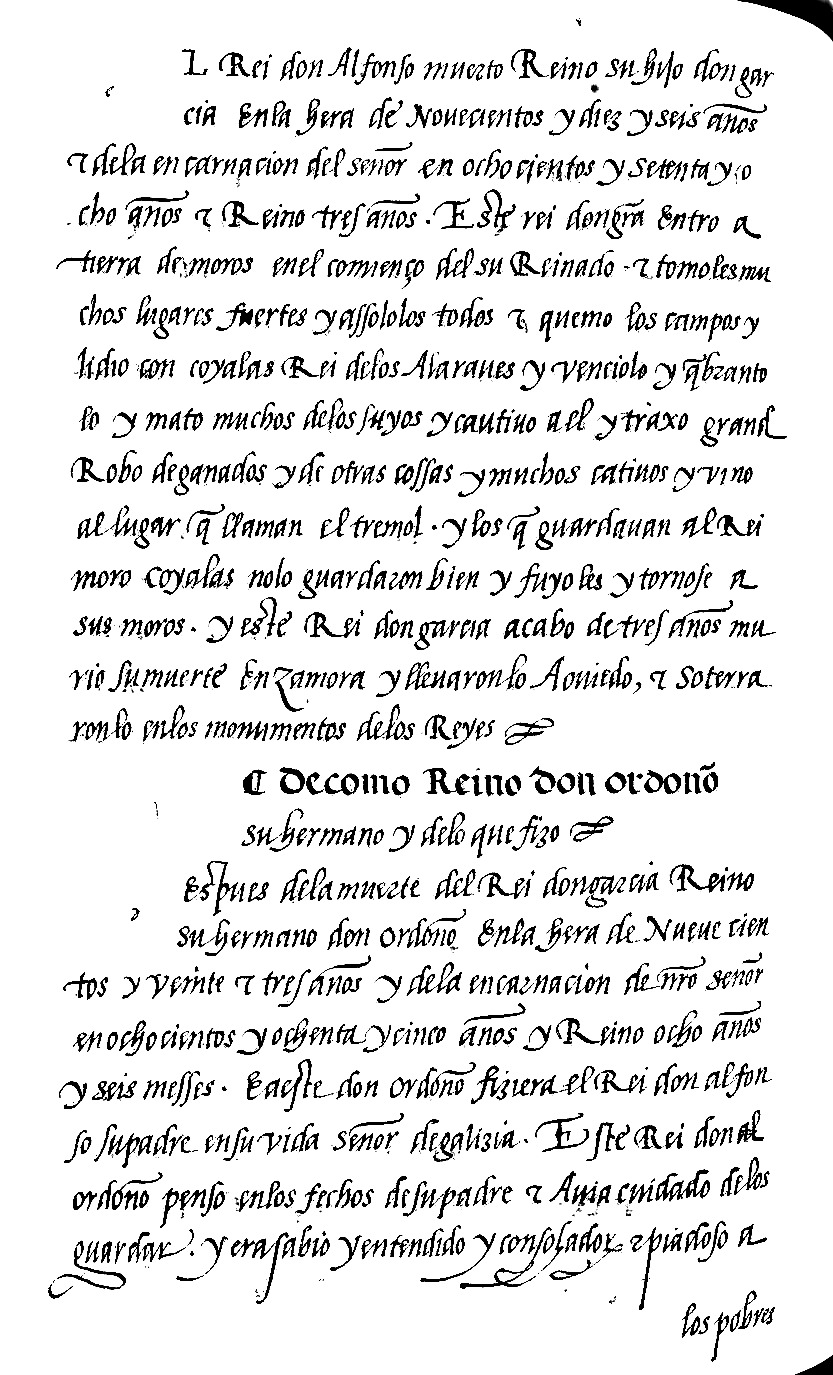 L Rei don Alfonso muerto Reino su hijo don gar
cia Enla hera de Novecientos y diez y seis años
τ dela encarnacion del señor en ochocientos y setenta y o
cho años τ Reino tres años. Este rei don gr̃a Entro a
tierra de moros enel comienço del su Reinado. τ tomoles mu
chos lugares fuertes y assololos todos τ quemo los campos y
lidio con coyalas Rei delos Alaraues y venciolo y q̃branto
lo y mato muchos delos suyos y cautiuo a el y traxo grand
Robo de ganados y de otras cossas y muchos catiuos y vino
al lugar q̃ llaman el tremol. y los q̃ guardauan al Rei
moro coyalas nolo guardaron bien y fuyoles y tornose a
sus moros. y este Rei don garcia acabo de tres años mu
rio su muerte En zamora y lleuaronlo Aouiedo, τ soterra
ronlo enlos monumentos delos Reyes
¶ De como Reino don ordoño
su hermano y delo que fizo
Espues dela muerte del Rei don garcia Reino
su hermano don ordoño Enla hera de Nueue cien
tos y veinte τ tres años y dela encarnacion de nr̃o señor
en ochocientos y ochenta y cinco años y Reino ocho años
y seis messes. E a este don ordoño fiziera el Rei don alfon
so su padre en su vida señor de galizia. Este Rei don al
ordoño penso enlos fechos de su padre τ Auia cuidado delos
guardar. y era sabio y entendido y consolador τ piadoso a
los pobres